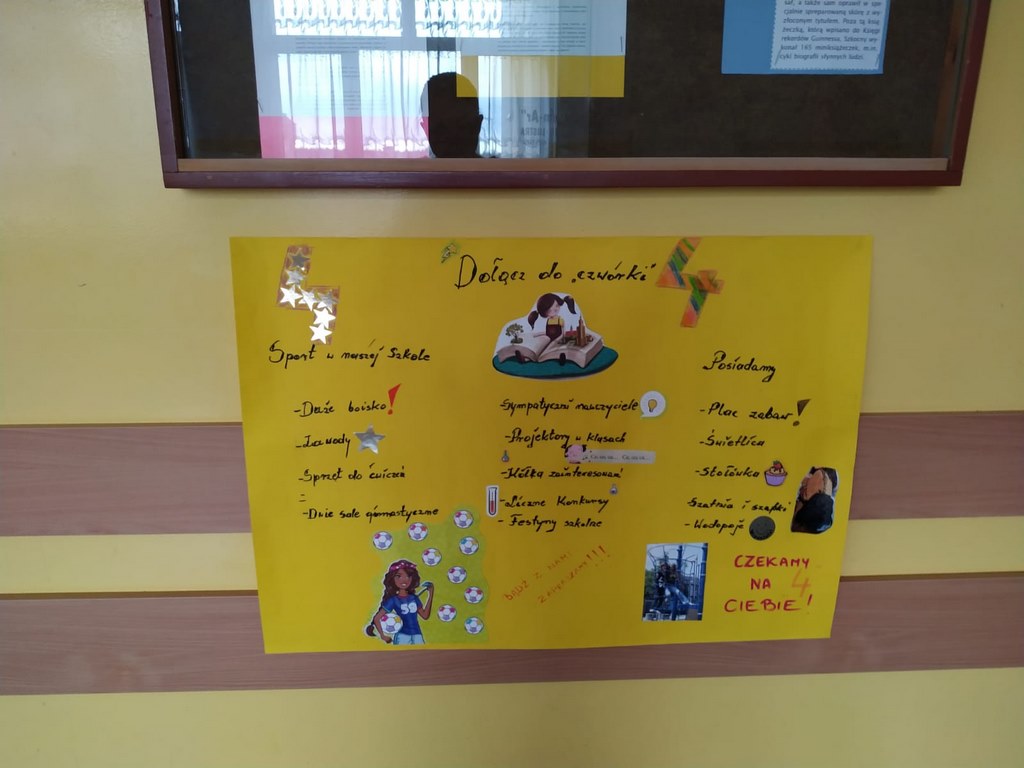 saf, a także sam oprawił w spe-
cjalnie spreparowaną skórę z wy-
złoconym tytułem. Poza tą ksią-
żeczką, którą wpisano do Księgi
rekordów Guinnessa, Szkolny wy-
konał 145 miniksiążeczek, m.in.
cykl biografii sławnych ludzi.
4
Dołącz do "czwórki"
4
Sport w naszej Szkole
- Duże boisko!
- Zawody
- Sprzęt do ćwiczeń
- Dwie sale gimnastyczne
58
- Sympatyczni nauczyciele
- Projektory w klasach
- Kółka zainteresowań
- Liczne Konkursy
- Festyny szkolne
BĄDŹ Z NAMI
!!!
Posiadamy
- Plac zabaw!
- Świetlica
- Stołówka
Szatnia i szafki
- Wodopoje
CZEKAMY
NA 4
CIEBIE!